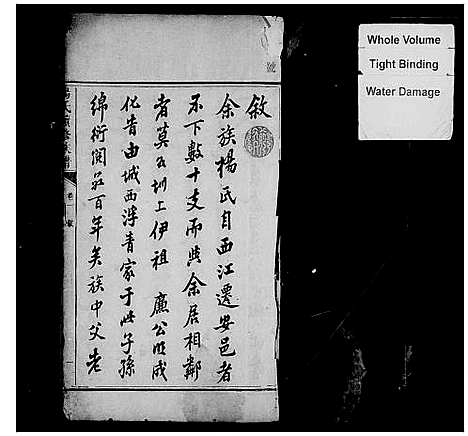 敘
余族楊氏自西江遷安邑者
不下數十支而與余居相鄰
者莫如圳上伊祖 廉公明成
化昔由城西浮青家于此子孫
綿衍閱茲百年矣族中父老
Whole Volume
Tight Binding
Water Damage